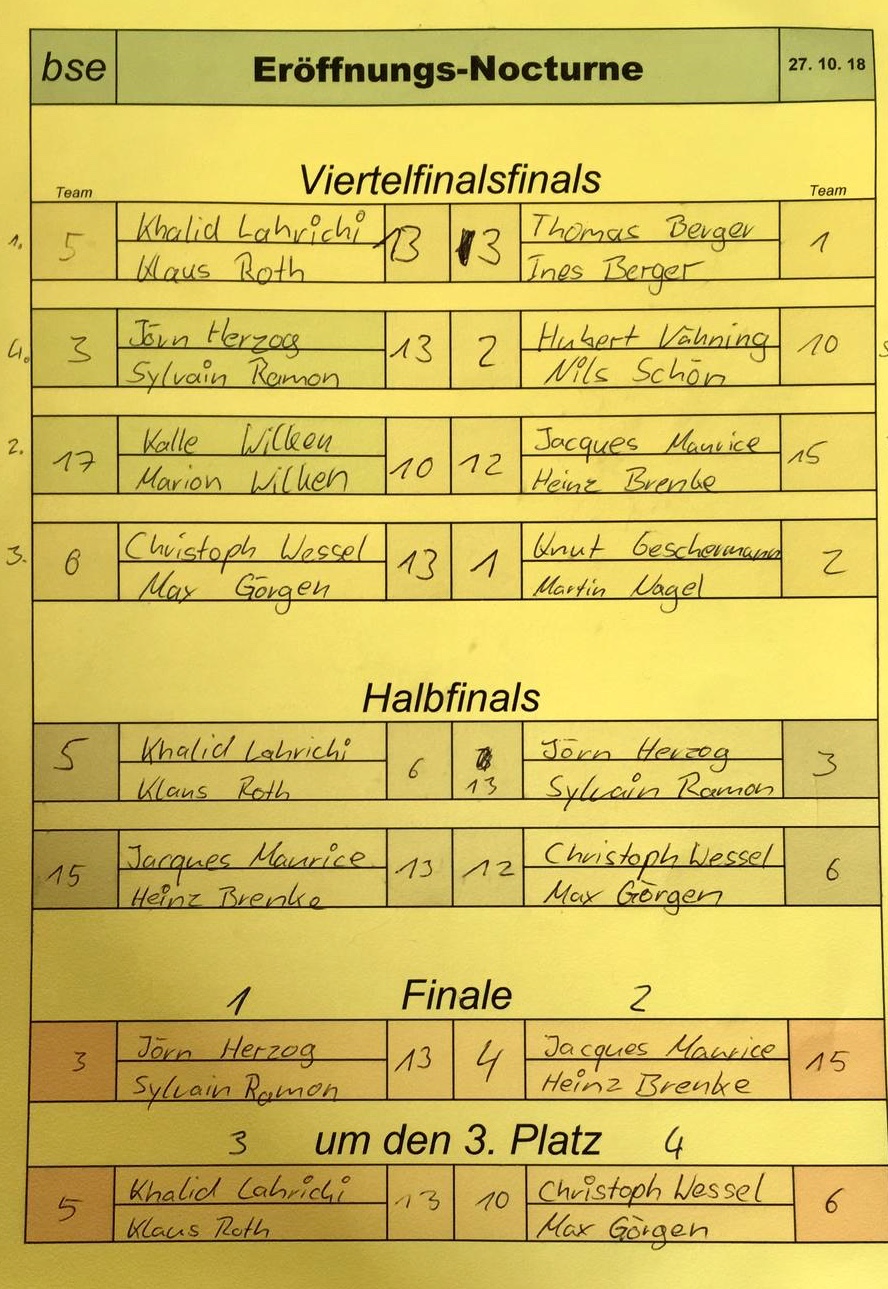 bse Eröffnungs-Nocturne 27. 10. 18
Viertelfinalsfinals
Team Team
1. 5 Khalid Lahrichi 13 3 Thomas Berger 1
Klaus Roth Ines Berger
4. 3 Jörn Herzog 13 2 Hubert Vähning 10
Sylvain Ramon Nils Schön
2. 17 Kalle Wilken 10 12 Jacques Maurice 15
Marion Wilken Heinz Brenke
3. 6 Christoph Wessel 13 1 Knut Geschermann 2
Max Görgen Martin Nagel
Halbfinals
5 Khalid Lahrichi 6 13 Jörn Herzog 3
Klaus Roth Sylvain Ramon
15 Jacques Maurice 13 12 Christoph Wessel 6
Heinz Brenke Max Görgen
1 Finale 2
3 Jörn Herzog 13 4 Jacques Maurice 15
Sylvain Ramon Heinz Brenke
3 um den 3. Platz 4
5 Khalid Lahrichi 13 10 Christoph Wessel 6
Klaus Roth Max Görgen